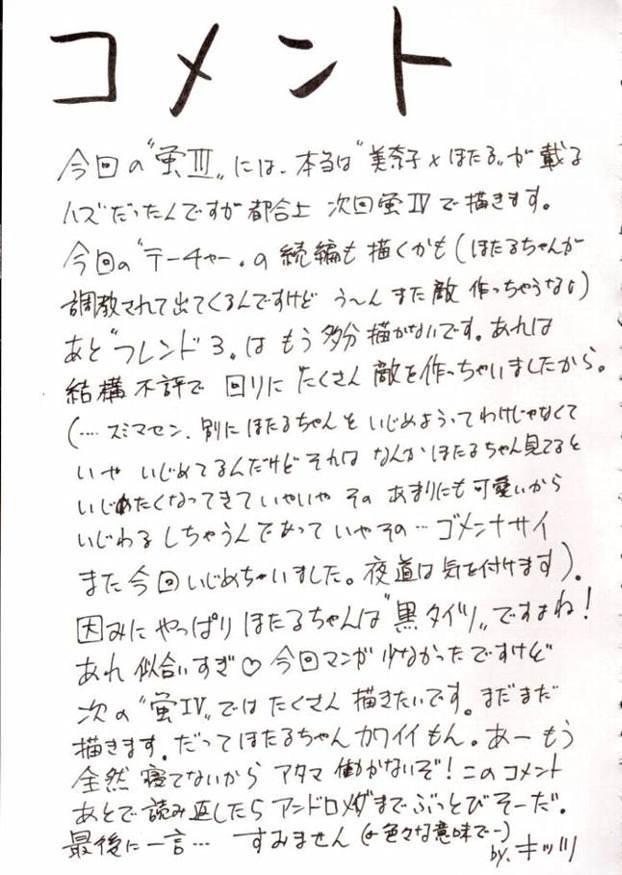 コメント
今回の"蛍III"には、本当は"美奈子×ほたる"が載る
ハズだったんですが都合上 次回蛍IVで描きます。
今回の"テーチャー"の続編も描くかも(ほたるちゃんが
調教されて出てくるんですけど う〜ん また敵 作っちゃうな)
あと"フレンド3"はもう多分描かないです。あれは
結構不評で 回りにたくさん敵を作っちゃいましたから。
(…スミマセン、別にほたるちゃんをいじめようってわけじゃなくて
いや いじめてるんだけど それは なんかほたるちゃん見てると
いじめたくなってきていやいや その あまりにも可愛いから
いじわるしちゃうんであって いやその…ゴメンナサイ
また今回いじめちゃいました。夜道は気を付けます)。
因みに やっぱり ほたるちゃんは"黒タイツ"ですよね!
あれ 似合いすぎ♡ 今回マンガ 少なかったですけど
次の"蛍IV"では たくさん 描きたいです。まだまだ
描きます。だってほたるちゃんカワイイもん。あーもう
全然寝てないから アタマ働かないぞ!このコメント
あとで読み返したらアンドロメダまでぶっとびそーだ。
最後に一言… すみません(←色々な意味でー)
by.キッツ